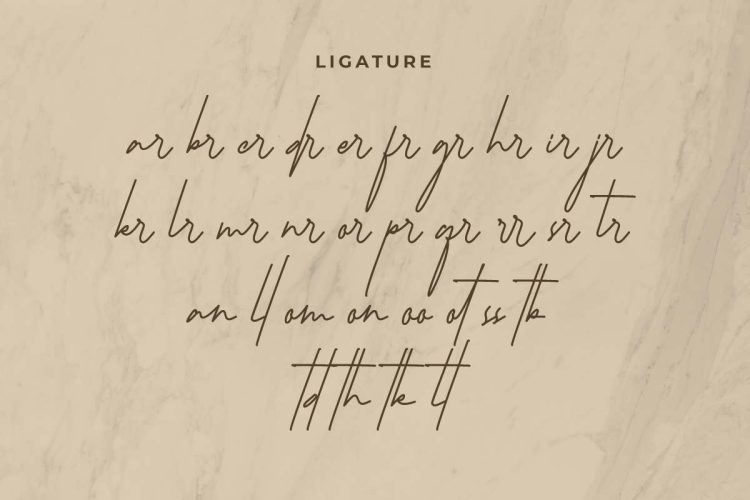 LIGATURE
ar br cr dr er fr gr hr ir jr
kr lr mr nr or pr qr rr sr tr
an ll om on oo ot ss tb
td th tk lt